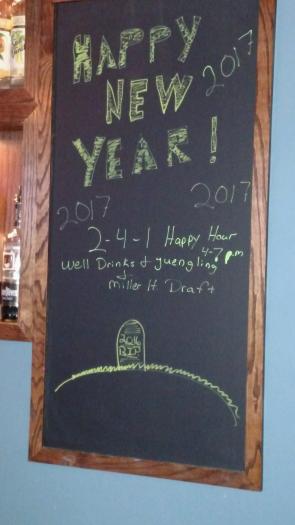 HAPPY
2017
NEW
YEAR!
2017
2017
2-4-1 Happy Hour
4-7 pm
Well Drinks & yuengling
&
miller lt Draft
2016
RIP